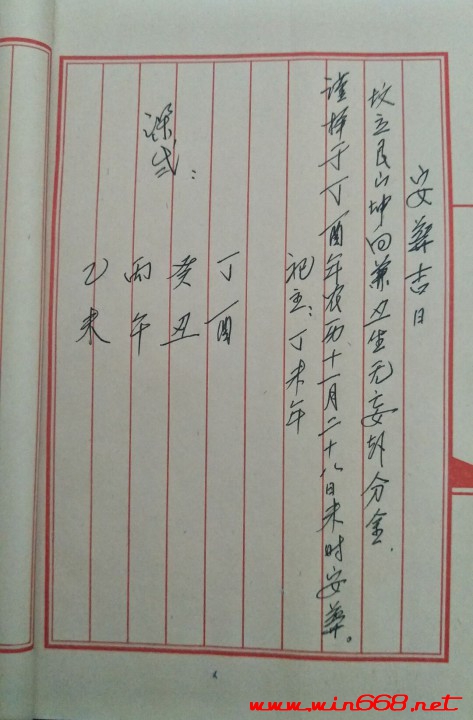 安葬吉日
坟立艮山坤向兼丑生无妄卦分金.
谨择于丁酉年农历十一月二十八日未时安葬。
祀主:丁未年
丁酉
癸丑
丙午
课式:
乙未
www.win668.net